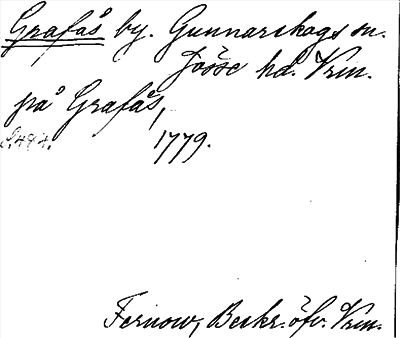 Grafås by. Gunnarskogs sn.
Jösse hd. Vrm.
på Grafås,
S. 484. 1779.
Fernow, Beskr. öfv. Vrm.